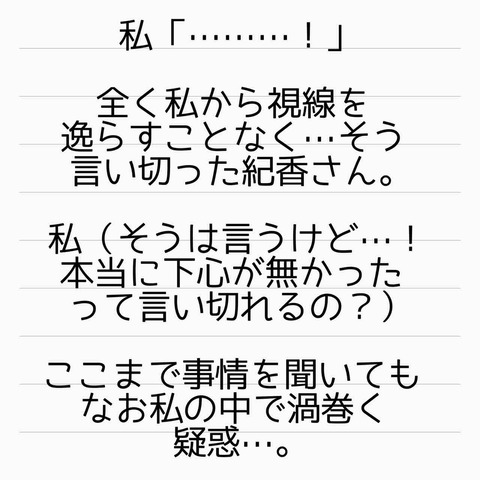 私「………！」
全く私から視線を
逸らすことなく…そう
言い切った紀香さん。
私（そうは言うけど…！
本当に下心が無かった
って言い切れるの？）
ここまで事情を聞いても
なお私の中で渦巻く
疑惑…。